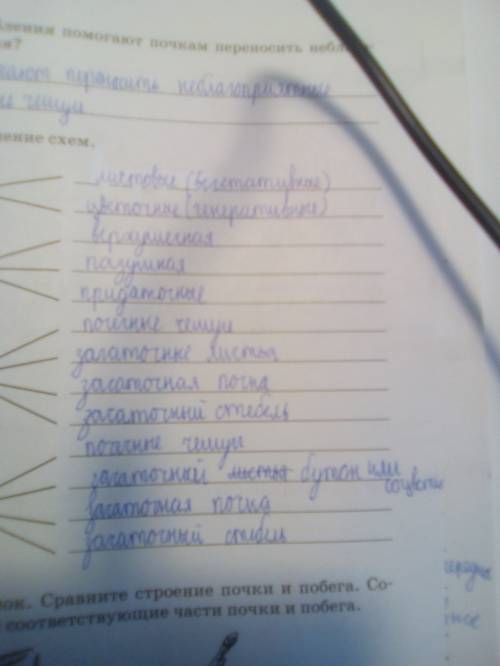 помогают почкам переносить
ия?
переносить неблагоприятные
чешуи
ение схем.
листовые (вегетативные)
цветочные (генеративные)
верхушечная
пазушная
придаточные
почечные чешуи
зачаточные листья
зачаточная почка
зачаточный стебель
почечные чешуи
зачаточный бутон или
соцветие
зачаточная почка
зачаточный стебель
нок. Сравните строение почки и побега. Со-
соответствующие части почки и побега.